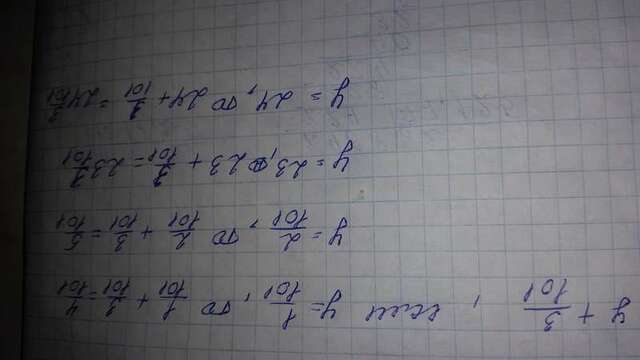 y + 3/101, если y = 1/101, то 1/101 + 3/101 = 4/101
y = 2/101, то 2/101 + 3/101 = 5/101
y = 23, то 23 + 3/101 = 23 3/101
y = 24, то 24 + 3/101 = 24 3/101